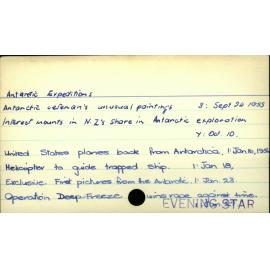 Antarctic Expeditions
Antarctic veteran's unusual paintings 3: Sept 26 1955
Interest mounts in N.Z's share in Antarctic exploration
Y: Oct. 10.
United States planes back from Antarctica, 1: Jan 14, 1956
Helicopter to guide trapped ship. 1: Jan 18,
Exclusive First pictures from the Antarctic. 1: Jan. 23.
Operation Deep-Freeze wins race against time.
EVENING STAR